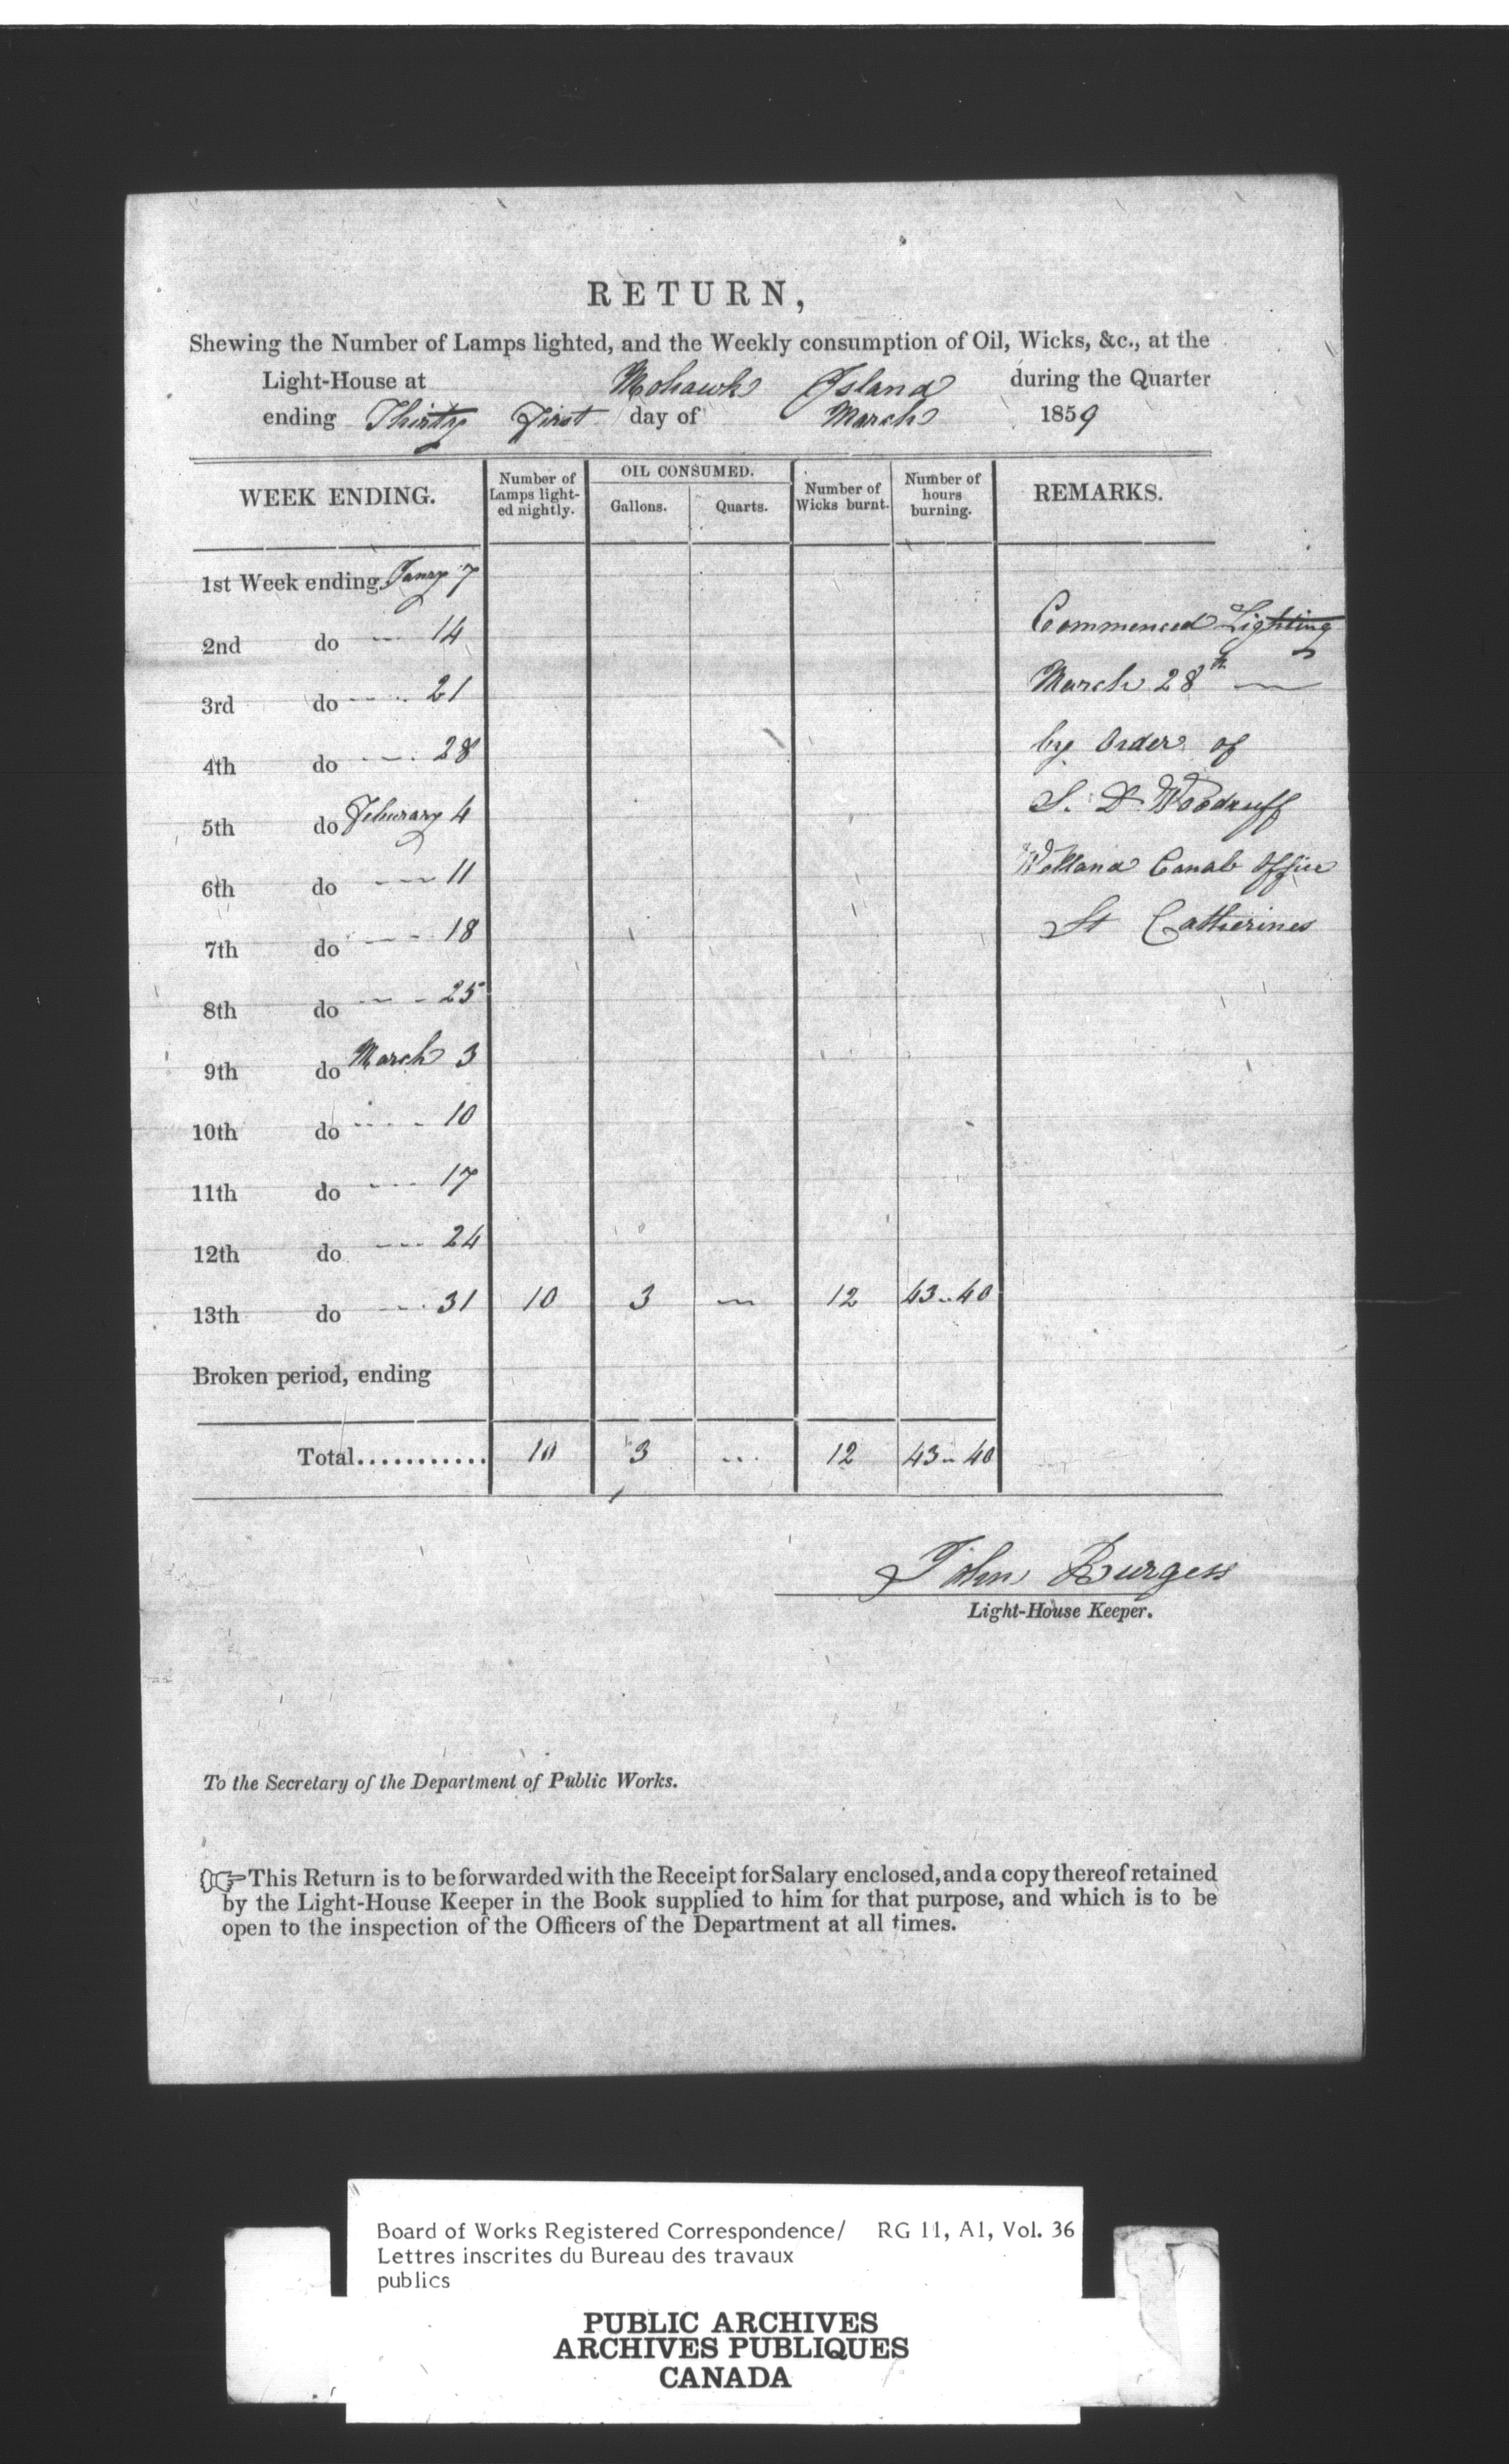 RETURN,
Shewing the Number of Lamps lighted, and the Weekly consumption of Oil, Wicks, &c., at the
Light-House at Mohawk Island during the Quarter
ending Thirty First day of March 1859
WEEK ENDING. Number of Lamps lighted nightly. OIL CONSUMED. Gallons. Quarts. Number of Wicks burnt. Number of hours burning. REMARKS.
1st Week ending Janry 7
2nd do --- 14 Commenced Lighting
3rd do ---- 21 March 28th —
4th do ---- 28 by Order of
5th do Feburary 4 S. D Woodruff
6th do --- 11 Welland Canal Office
7th do --- 18 St Catherines
8th do --- 25
9th do March 3
10th do ---- 10
11th do ---- 17
12th do ---- 24
13th do ---- 31 10 3 — 12 43..40
Broken period, ending
Total........... 10 3 ... 12 43..40
John Burgess
Light-House Keeper.
To the Secretary of the Department of Public Works.
☞This Return is to be forwarded with the Receipt for Salary enclosed, and a copy thereof retained
by the Light-House Keeper in the Book supplied to him for that purpose, and which is to be
open to the inspection of the Officers of the Department at all times.
Board of Works Registered Correspondence/ RG 11, A1, Vol. 36
Lettres inscrites du Bureau des travaux
publics
PUBLIC ARCHIVES
ARCHIVES PUBLIQUES
CANADA